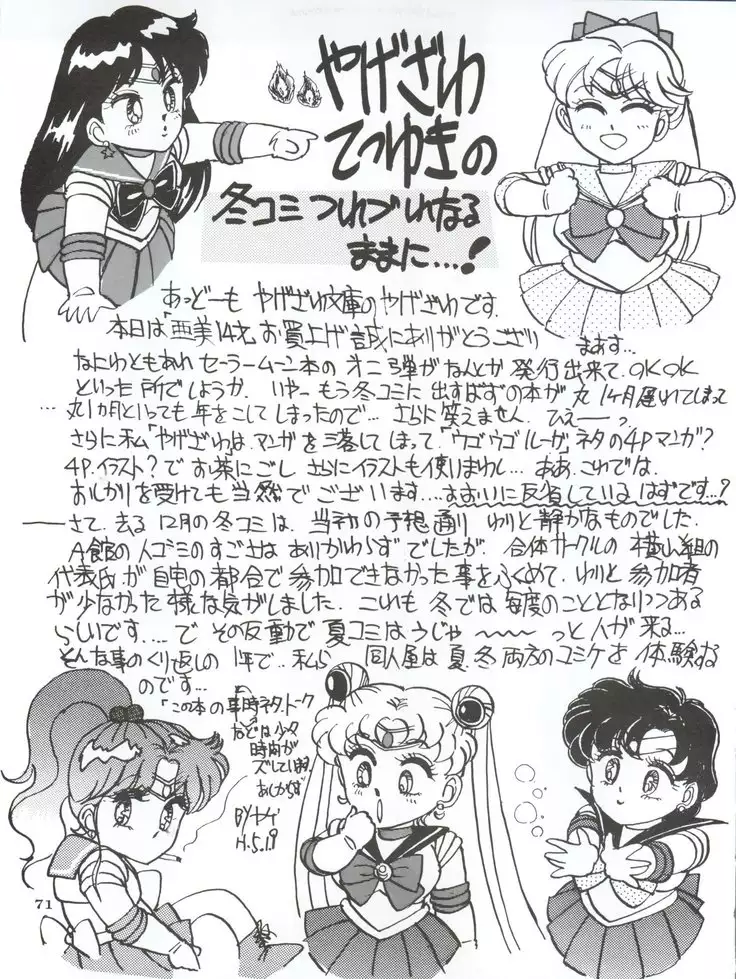 やげざわ
てつゆきの
冬コミつれづれなる
ままに…!
あっどーも やげざわ文庫のやげざわです.
本日は「亜美14才」お買上げ誠にありがとうござり
まあす…
なにわともあれ セーラームーン本の オニ弾がなんとか 発行出来て. OKOK
といった所でしょうか. いやー もう冬コミに 出すはずの本が 丸1ヶ月遅れてしまって
…丸1か月といっても 年をこしてしまったので… さらに 笑えません. ひえーーっ.
さらに 私「やげざわ」は. マンガを 三落してしまって. 「ウゴウゴルーガ」ネタの4Pマンガ?
4P. イラスト? で お茶にごし さらにイラストも使いまわし… ああ. これでは.
おしかりを受けても 当然で ございます.… おおいに反省しているはずです…?
——さて. 去る 12月の冬コミは. 当初の予想通り わりと静かなものでした.
A館の人ゴミのすごさは ありかわらず でしたが. 合体サークルの 横山組の
代表氏が 自宅の都合で 参加できなかった事をふくめて. わりと 参加者
が少なかった 様な気がしました. これも 冬では 毎度のこととなりつつある
らしいです…. で その反動で 夏コミは うじゃ〜〜〜 っと人が来る…
そんな事のくり返しの 1年で… 私ら 同人屋は 夏. 冬 両方のコミケを 体験する
のです…
「この本の
時事ネタ. トーク
などは 少々
時間が
ズレています
あしからず
BYヤゲ
H.5.1.9
71